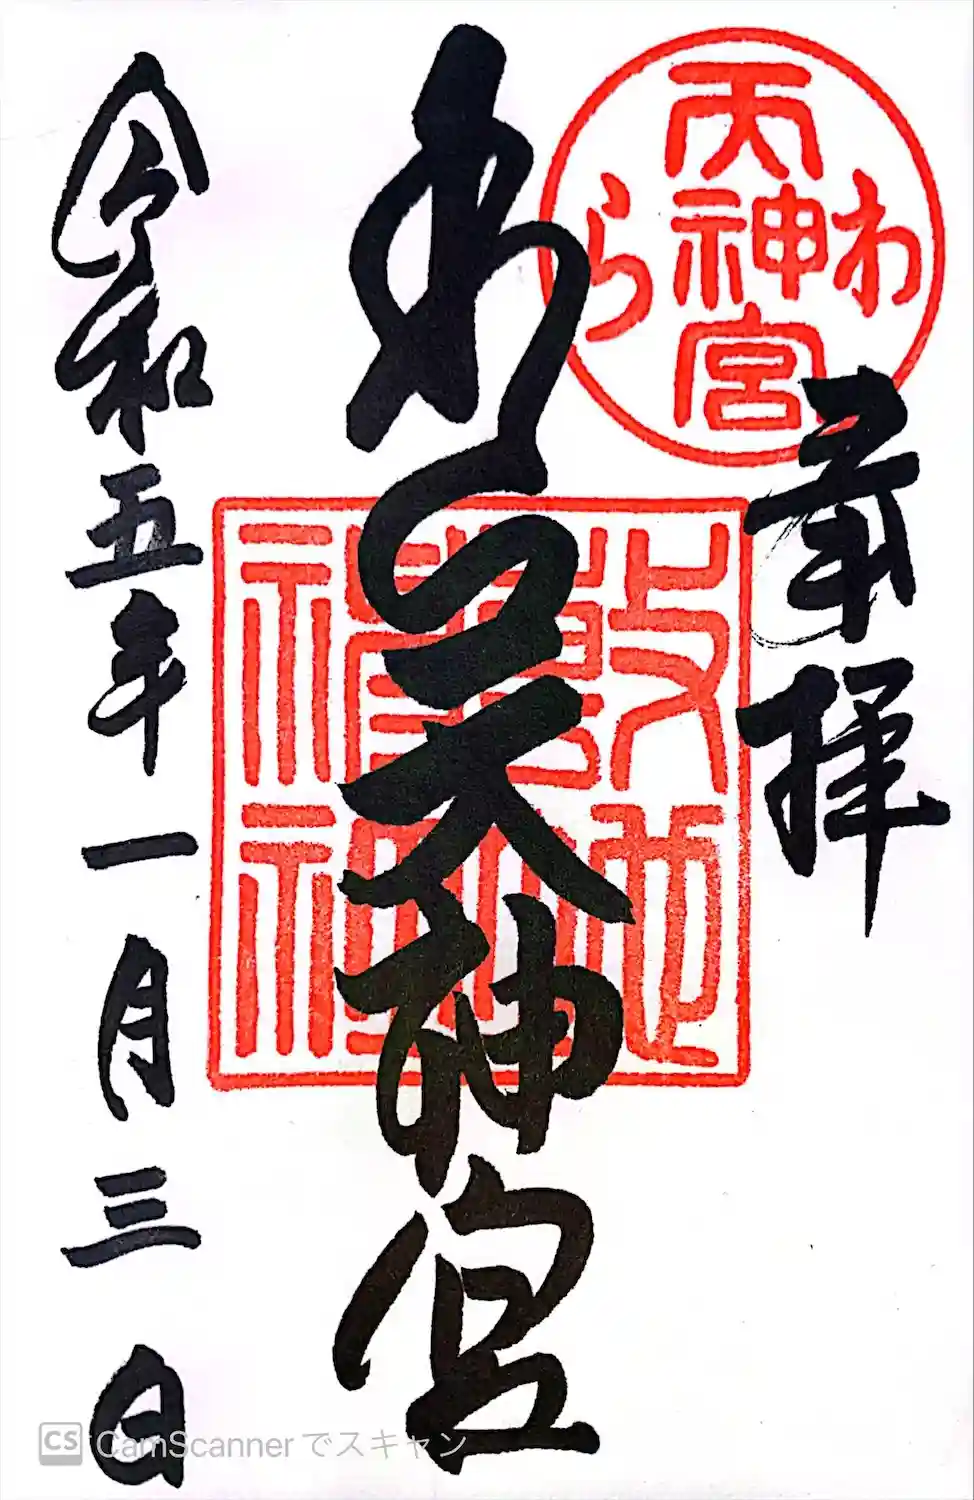 奉拝
わら
天神宮
わら天神宮
令和五年一月三日
CS CamScanner でスキャン